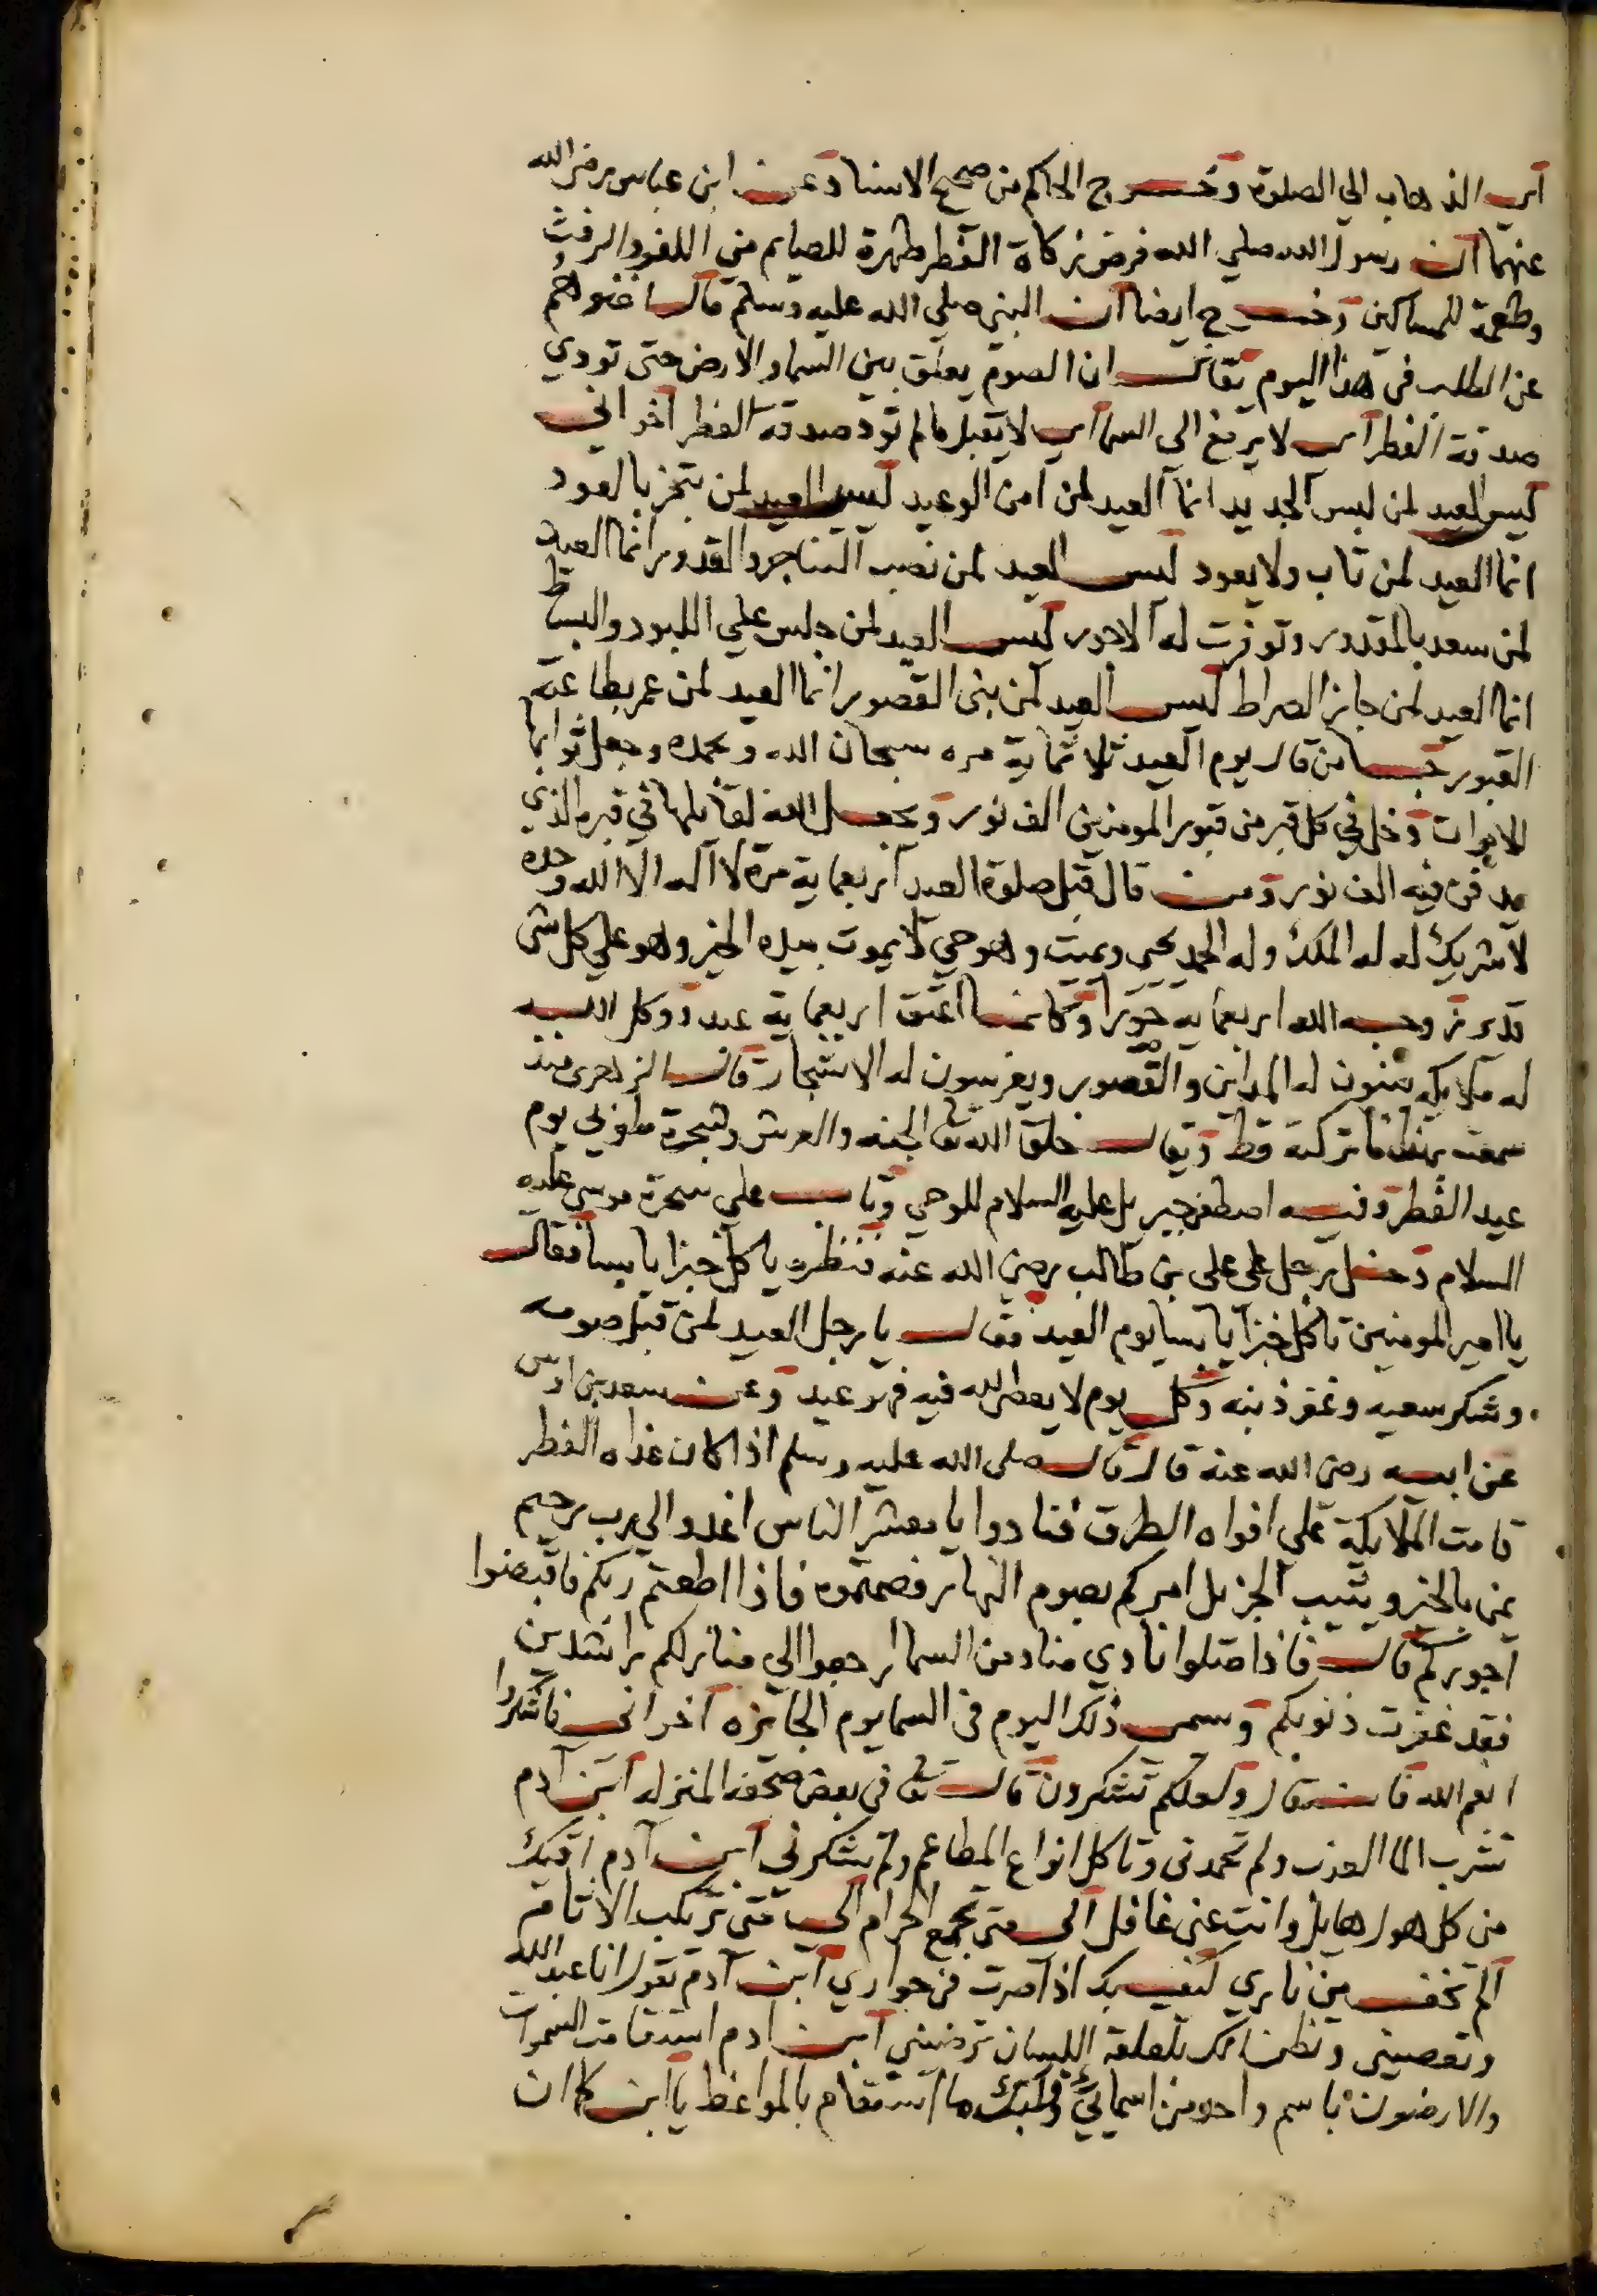 اي الذهاب الي الصلوة وخرج الحاكم من صحيح الاسناد عن ابن عباس رضي الله
عنهما ان رسول الله صلي الله فرض زكاة الفطر طهرة للصايم من اللغو والرفث
وطعمة للمساكين وخرج ايضا ان النبي صلي الله عليه وسلم قال اغنوهم
عن الطلب في هذا اليوم يقال ان الصوم يعلق بين السما والارض حتى تودي
صدقة الفطر اي لا يرفع الى السما اي لا يقبل ما لم تود صدقة الفطر اخواني
ليس العيد لمن لبس الجديد انما العيد لمن امن الوعيد ليس العيد لمن تبخر بالعود
انما العيد لمن تاب ولا يعود ليس العيد لمن نصب القدور انما العيد
لمن سعد بالمقدور وتوفرت له الاجور ليس العيد لمن جلس علي اللبود والبسط
انما العيد لمن جاز الصراط ليس العيد لمن بنى القصور انما العيد لمن عمر بطاعته
القبور من قال يوم العيد ثلاثماية مره سبحان الله وبحمده وجعل ثوابها
للاموات دخل في كل قبر من قبور المومنين الف نور ويجعل الله لقايلها في قبره الذي
يدفن فيه الف نور ومن قال قبل صلوة العيد اربعماية مرة لا اله الا الله وحده
لا شريك له له الملك وله الحمد يحي ويميت وهو حي لا يموت بيده الخير وهو علي كل شى
قدير زوجه الله اربعماية حورا وكانما اعتق اربعماية عبد ووكل الله
له ملايكه يبنون له المداين والقصور ويغرسون له الاشجار قال الزهري منذ
سمعته ما تركته قط ويقال خلق الله تعا الجنه والعرش وشجرة طوبي يوم
عيد الفطر وفيه اصطفى جبريل عليه السلام للوحي وتاب علي سحرة موسى عليه
السلام دخل رجل على على بن طالب رضي الله عنه فنظره ياكل خبزا يابسا فقال
يا امير المومنين تاكل خبزا يابسا يوم العيد فقال يا رجل العيد لمن قبل صومه
وشكر سعيه وغفر ذنبه وكل يوم لا يعصى الله فيه فهو عيد وعن سعد بن اوس
عن ابيه رضي الله عنه قال قال صلى الله عليه وسلم اذا كان غداه الفطر
قامت الملايكة علي افواه الطرق فنادوا يا معشر الناس اغدوا الي رب رحيم
يمن بالخير ويثيب الجزيل امركم بصوم النهار فصمتموه فاذا اطعتم ربكم فاقبضوا
اجوركم قال فاذا صلوا نادي مناد من السما ارجعوا الي منازلكم راشدين
فقد غفرت ذنوبكم وسمى ذلك اليوم في السما يوم الجايزه اخواني فاشكروا
انعم الله قال ولعلكم تشكرون قال تعا في بعض صحفه المنزله ابن آدم
تشرب الما العذب ولم تحمدنى وتاكل انواع المطاعم ولم تشكرني ابن آدم اقيك
من كل هول هايل وانت عني غافل الى متى تجمع الحرام الى متى تركب الاثام
الم تخف من ناري كيف بك اذا صرت في جواري ابن آدم تقول انا عبد الله
وتعصيني وتظن انك بلقلقة اللسان ترضيني ابن ادم استقامت السموات
والارضون باسم واحد من اسمايي وقلبك ما استقام بالمواعظ يا ابن كان